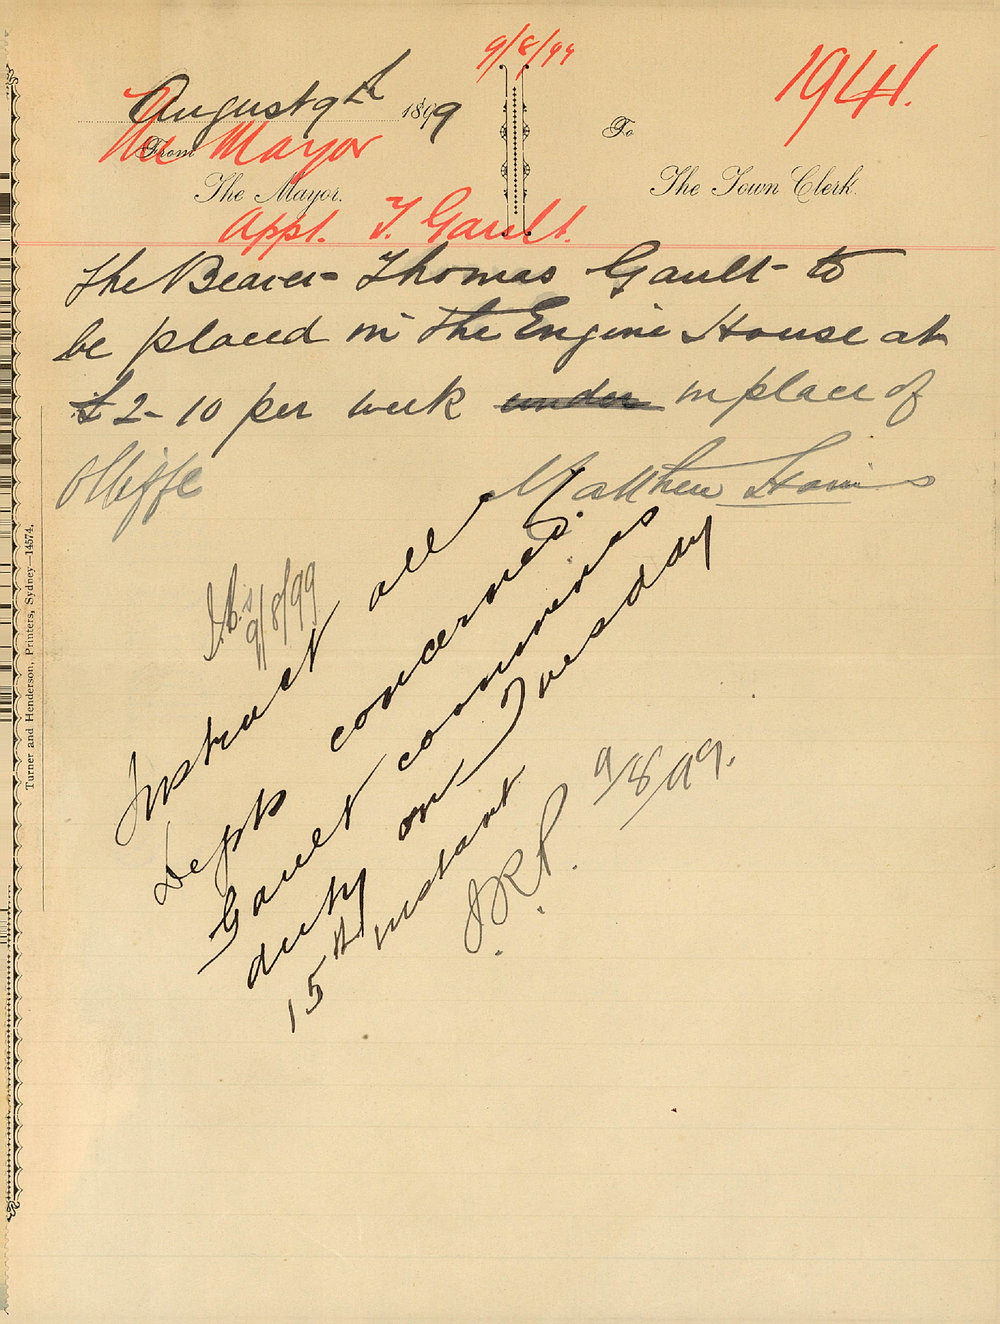 9/8/99
1941.
August 9th 1899
The Mayor
From
To
The Mayor.
The Town Clerk.
Appt. T. Gault.
The Bearer - Thomas Gault - to
be placed in the Engine House at
£2-10 per week under in place of
Olliffe
Matthew Harris
9/8/99
Instruct all
Depts concerned.
Gault commences
duty on Tuesday
15th instant
9/8/99.
Turner and Henderson, Printers, Sydney—14574.